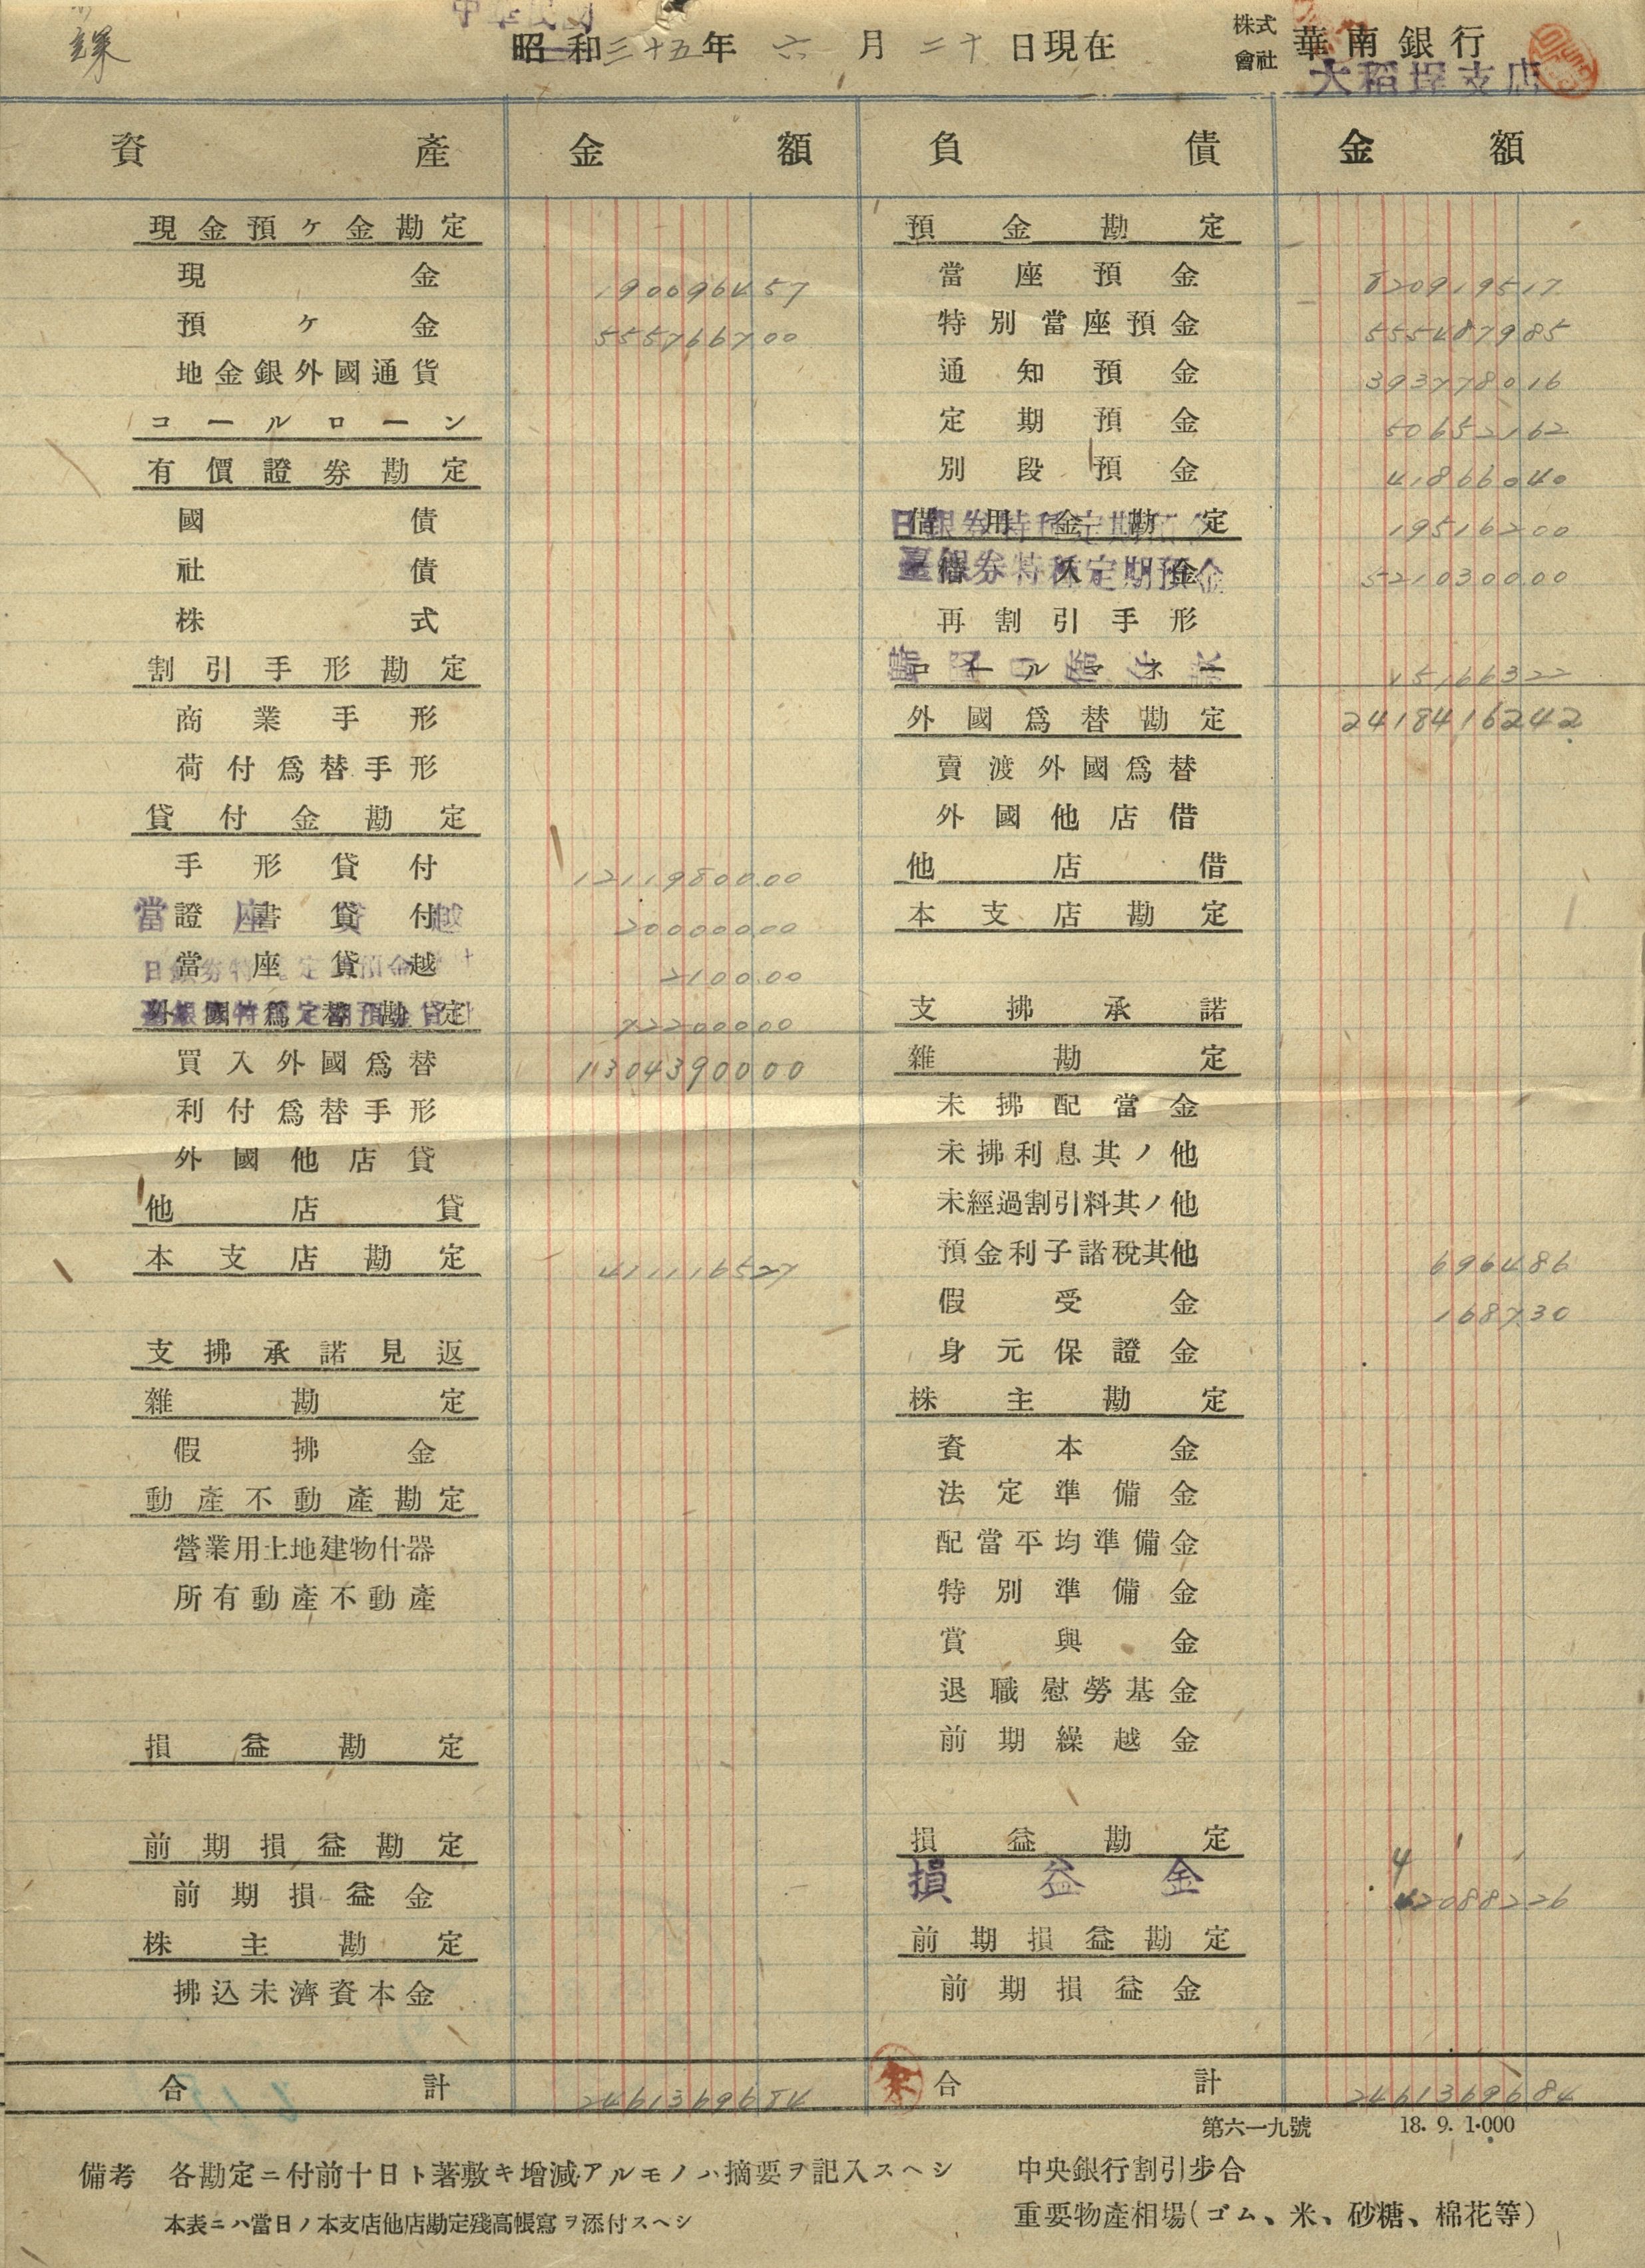 中華民國
昭和三十五年 六月二十日現在
株式會社 華南銀行
大稻埕支店
資產 金額 負債 金額
現金預ヶ金勘定 預金勘定
現金 190096457 當座預金 820919517
預ヶ金 555766700 特別當座預金 555487985
地金銀外國通貨 通知預金 393778016
コールローン 定期預金 50652162
有價證券勘定 別段預金 41866040
國債 借用金勘定 日銀券特種定期預金 19516200
社債 借入金 臺銀券特種定期預金 521030000
株式 再割引手形
割引手形勘定 コールマネー 15166322
商業手形 外國爲替勘定 2418416242
荷付爲替手形 賣渡外國爲替
貸付金勘定 外國他店借
手形貸付 1211980000 他店借
證書貸付 當座貸越 20000000 本支店勘定
當座貸越 210000
外國爲替勘定 72200000 支拂承諾
買入外國爲替 1304390000 雜勘定
利付爲替手形 未拂配當金
外國他店貸 未拂利息其ノ他
他店貸 未經過割引料其ノ他
本支店勘定 411116527 預金利子諸稅其他 696486
假受金 168730
支拂承諾見返 身元保證金
雜勘定 株主勘定
假拂金 資本金
動產不動產勘定 法定準備金
營業用土地建物什器 配當平均準備金
所有動產不動產 特別準備金
賞與金
退職慰勞基金
損益勘定 前期繰越金
前期損益勘定 損益勘定
前期損益金 損益金 42088226
株主勘定 前期損益勘定
拂込未濟資本金 前期損益金
合計 2461369684 合計 2461369684
第六一九號 18. 9. 1·000
備考 各勘定ニ付前十日ト著敷キ增減アルモノハ摘要ヲ記入スヘシ 中央銀行割引步合
本表ニハ當日ノ本支店他店勘定殘高帳寫ヲ添付スヘシ 重要物產相場(ゴム、米、砂糖、棉花等)